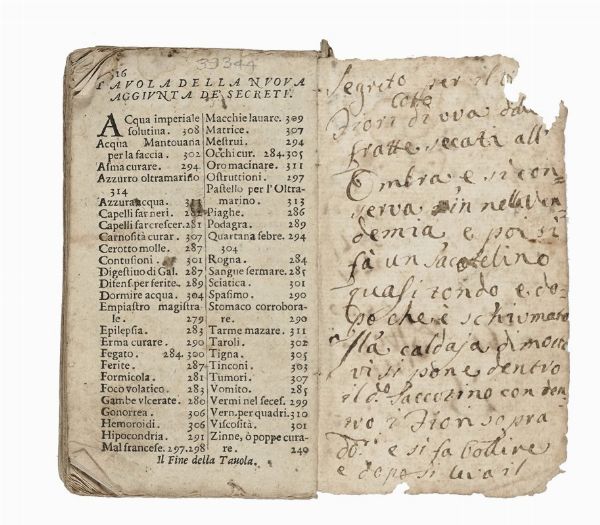 33344
316
TAVOLA DELLA NVOVA
AGGIVNTA DE' SECRETI.
ACqua imperiale
solutiua. 308
Acqua Mantouana
per la faccia. 302
Asma curare. 294
Azzurro oltramarino
314
Azzura acqua. 313
Capelli far neri. 282
Capelli far crescer. 281
Carnosità curar. 307
Cerotto molle. 287
Contusioni. 301
Digestiuo di Gal. 287
Difens. per ferite. 289
Dormire acqua. 304
Empiastro magistra-
le. 279
Epilepsia. 283
Erma curare. 290
Fegato. 284. 300
Ferite. 287
Formicola. 281
Foco volatico. 283
Gambe vlcerate. 280
Gonorrea. 306
Hemoroidi. 306
Hipocondria. 291
Mal francese. 297. 298
Macchie lauare. 309
Matrice. 307
Mestrui. 294
Occhi cur. 284. 305
Oro macinare. 311
Ostruttioni. 297
Pastello per l'Oltra-
marino. 313
Piaghe. 286
Podagra. 289
Quartana febre. 294
304
Rogna. 284
Sangue fermare. 285
Sciatica. 301
Spasimo. 290
Stomaco corrobora-
re. 290
Tarme mazare. 311
Taroli. 302
Tigna. 305
Tinconi. 303
Tumori. 307
Vomito. 285
Vermi nel seces. 299
Vern. per quadri. 310
Viscosità. 301
Zinne, ò poppe cura-
re. 249
Il Fine della Tauola.
Segreto per il
Fiori di uva
fratte secati all'
Ombra e si con-
serva sin nella ven-
demia e poi si
fà un Saccolino
quasi tondo e do-
po che è schiumato
la caldaja di mosto
vi si pone dentro
il do. Saccotino con den-
tro i Fiori sopra
do.i e si fa bollire
e dopo si leva il